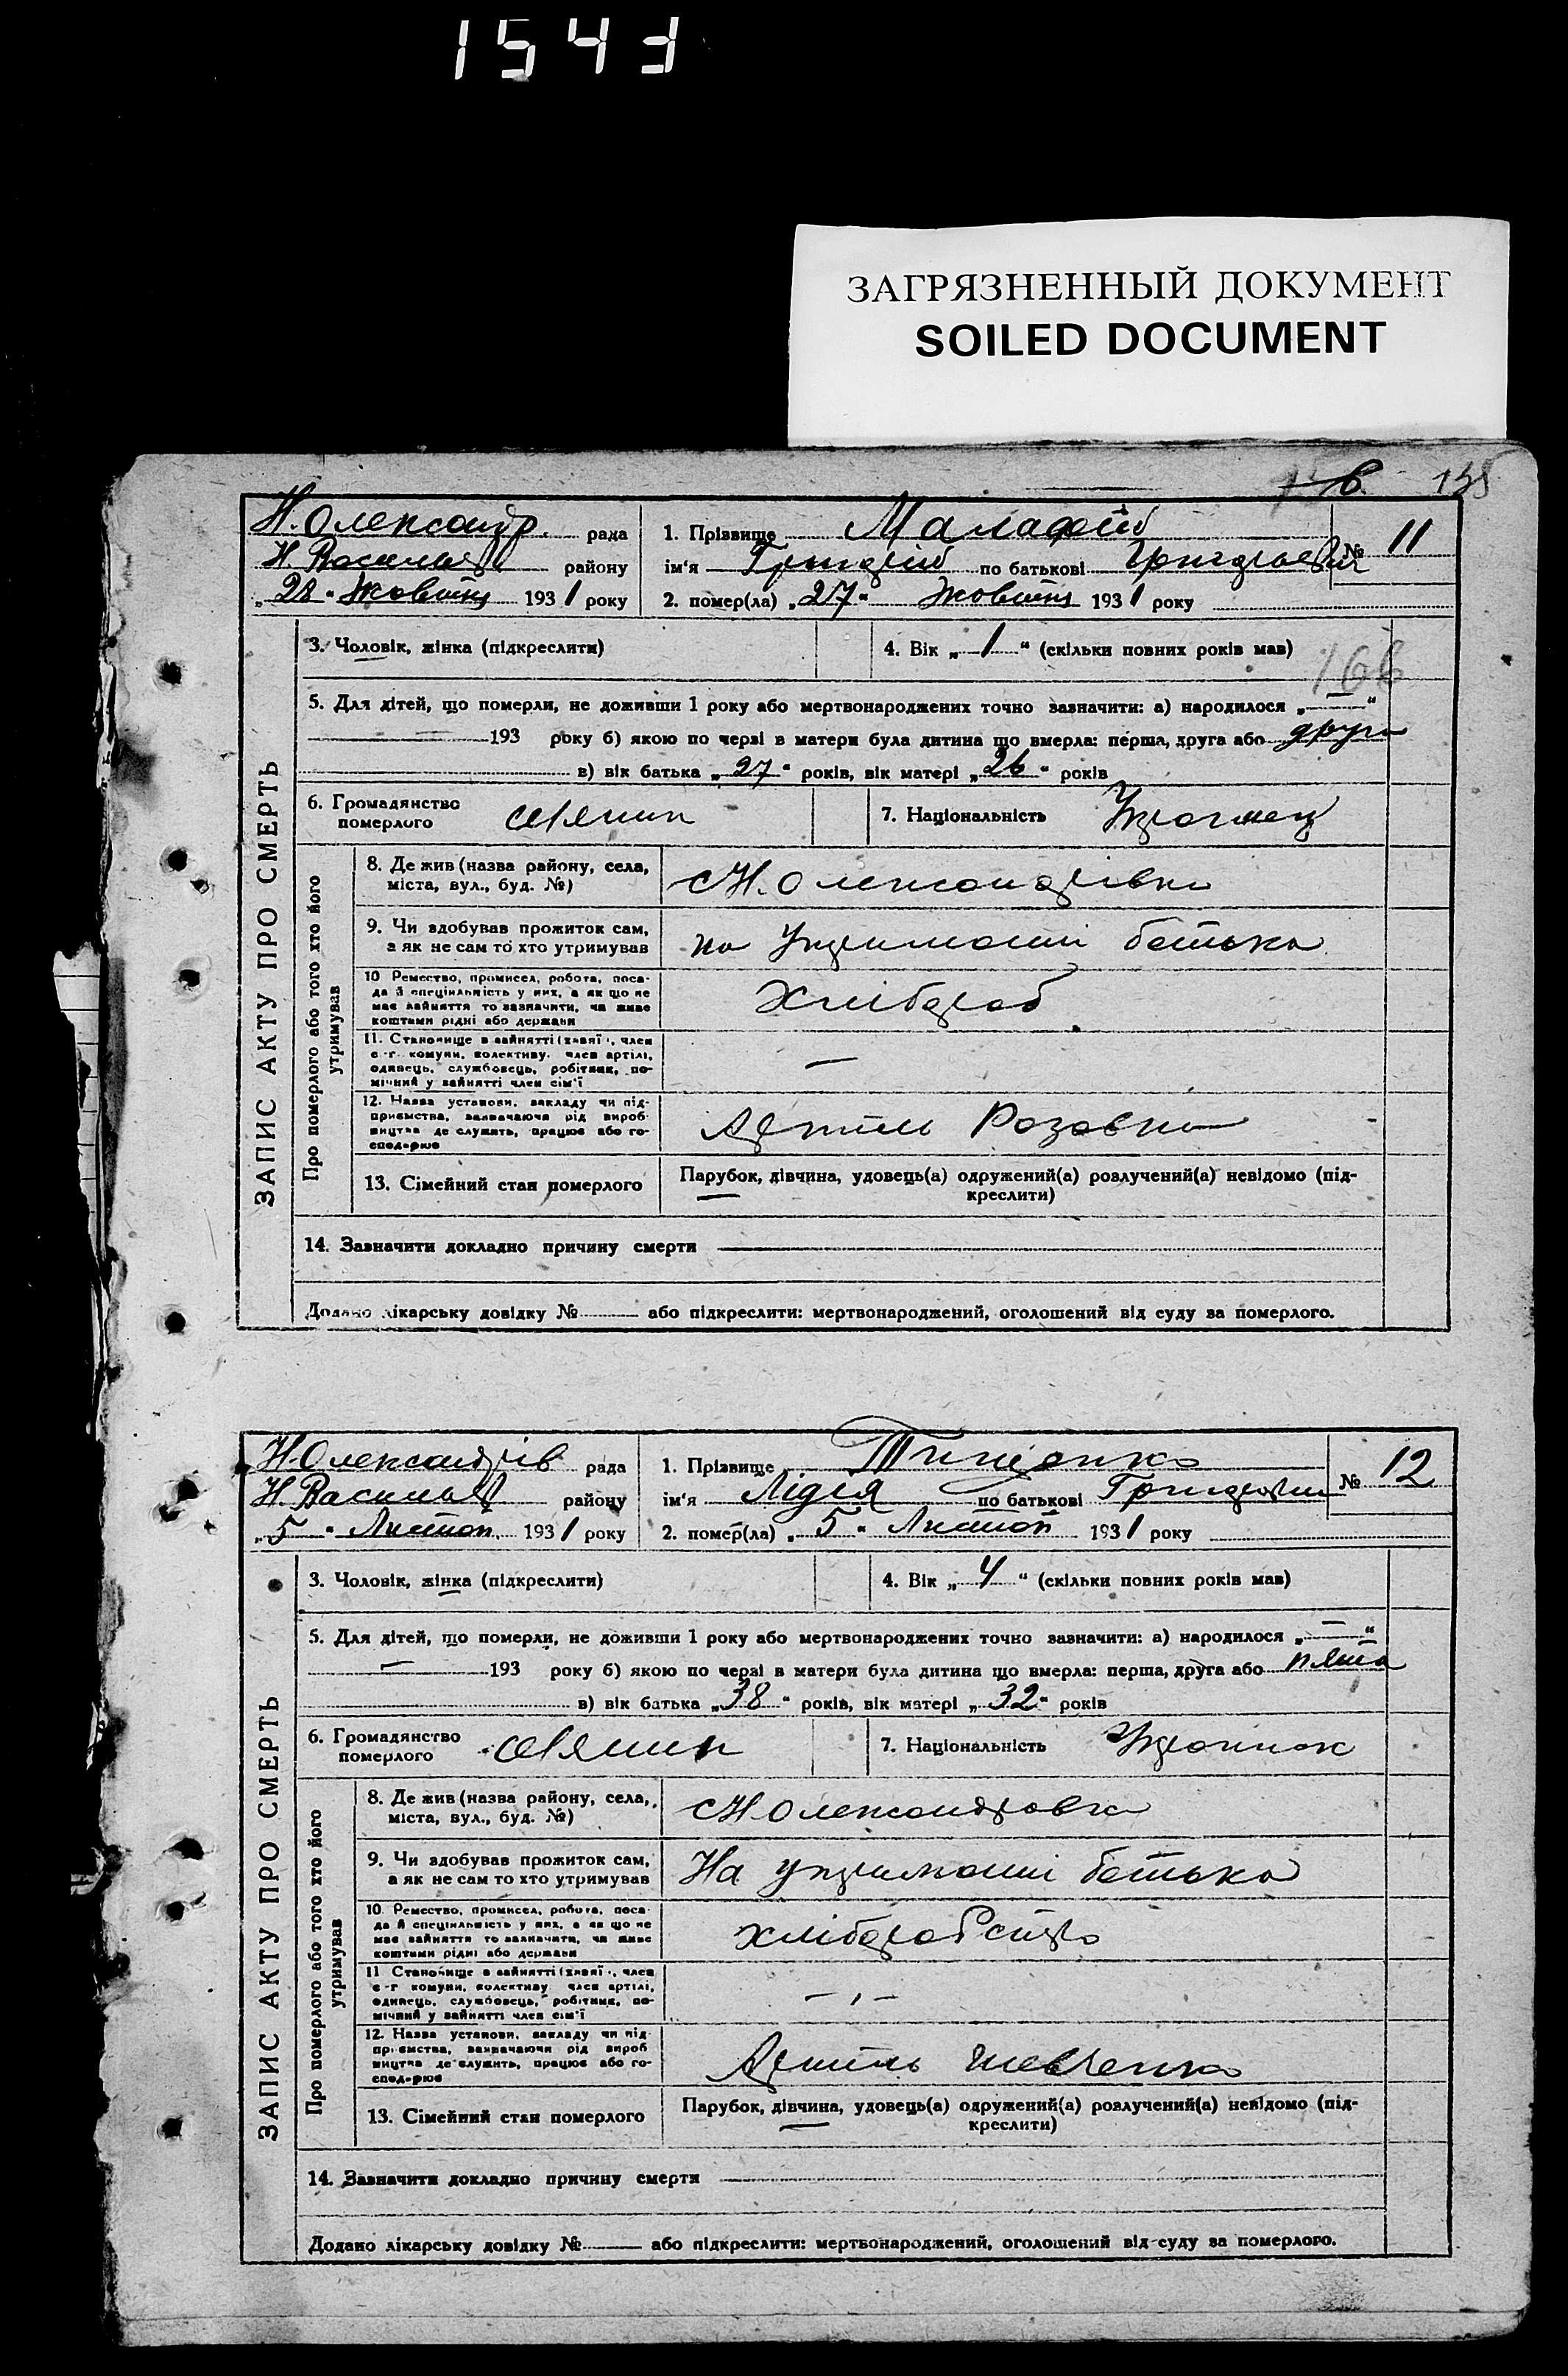 1543
ЗАГРЯЗНЕННЫЙ ДОКУМЕНТ
SOILED DOCUMENT
Н.Олександр. рада
Н Васильев району
„28“ Жовтня 1931 року
1. Прізвище Малафій
ім'я Григорій по батькові Григорьевич
2. помер(ла) „27“ Жовтня 1931 року
№ 11
3. Чоловік, жінка (підкреслити)
4. Вік „1“ (скільки повних років мав)
166
5. Для дітей, що померли, не доживши 1 року або мертвонароджених точно зазначити: а) народилося „—“
193 року б) якою по черзі в матери була дитина що вмерла: перша, друга або друга
в) вік батька „27“ років, вік матері „26“ років
6. Громадянство померлого селянин
7. Національність Українец
ЗАПИС АКТУ ПРО СМЕРТЬ
Про померлого або того хто його утримував
8. Де жив (назва району, села, міста, вул., буд. №)
с Н.Олександрівка
9. Чи здобував прожиток сам, а як не сам то хто утримував
на Утриманні батька
10 Ремество, промисел, робота, поса-
да й спеціяльність у них, а як що не
має зайняття то зазначити, чи живе
коштами рідні або держави
Хлібороб
11. Становище в зайнятті (хазяї, член
с-г комуни, колективу, член артілі,
одинець, службовець, робітник, по-
мічний у зайнятті член сім'ї
—
12. Назва установи, закладу чи під-
приємства, зазначаючи рід вироб-
ництва де служить, працює або го-
сподарює
Артиль Розовка
13. Сімейний стан померлого
Парубок, дівчина, удовець(а) одружений(а) розлучений(а) невідомо (під-
креслити)
14. Зазначити докладно причину смерти
Додано лікарську довідку № або підкреслити: мертвонароджений, оголошений від суду за померлого.
Н.Олександрів рада
Н.Васильев району
„5“ Листоп. 1931 року
1. Прізвище Тищенко
ім'я Лідія по батькові
2. помер(ла) „5“ Листоп 1931 року
№ 12
3. Чоловік, жінка (підкреслити)
4. Вік „4“ (скільки повних років мав)
5. Для дітей, що померли, не доживши 1 року або мертвонароджених точно зазначити: а) народилося „—“
— 193 року б) якою по черзі в матери була дитина що вмерла: перша, друга або пята
в) вік батька „38“ років, вік матері „32“ років
6. Громадянство померлого селянин
7. Національність
ЗАПИС АКТУ ПРО СМЕРТЬ
Про померлого або того хто його утримував
8. Де жив (назва району, села, міста, вул., буд. №)
с Н Олександровка
9. Чи здобував прожиток сам, а як не сам то хто утримував
На утриманні батька
10. Ремество, промисел, робота, поса-
да й спеціяльність у них, а як що не
має зайняття то зазначити, чи живе
коштами рідні або держави
хліборобство
11 Становище в зайнятті (хазяї, член
с-г комуни, колективу член артілі,
одинець, службовець, робітник, по-
мічний у зайнятті член сім'ї
— , —
12. Назва установи, закладу чи під-
приємства, зазначаючи рід вироб
ництва де служить, працює або го-
сподарює
Артиль Шевченка
13. Сімейний стан померлого
Парубок, дівчина, удовець(а) одружений(а) розлучений(а) невідомо (під-
креслити)
14. Зазначити докладно причину смерти
Додано лікарську довідку № або підкреслити: мертвонароджений, оголошений від суду за померлого.